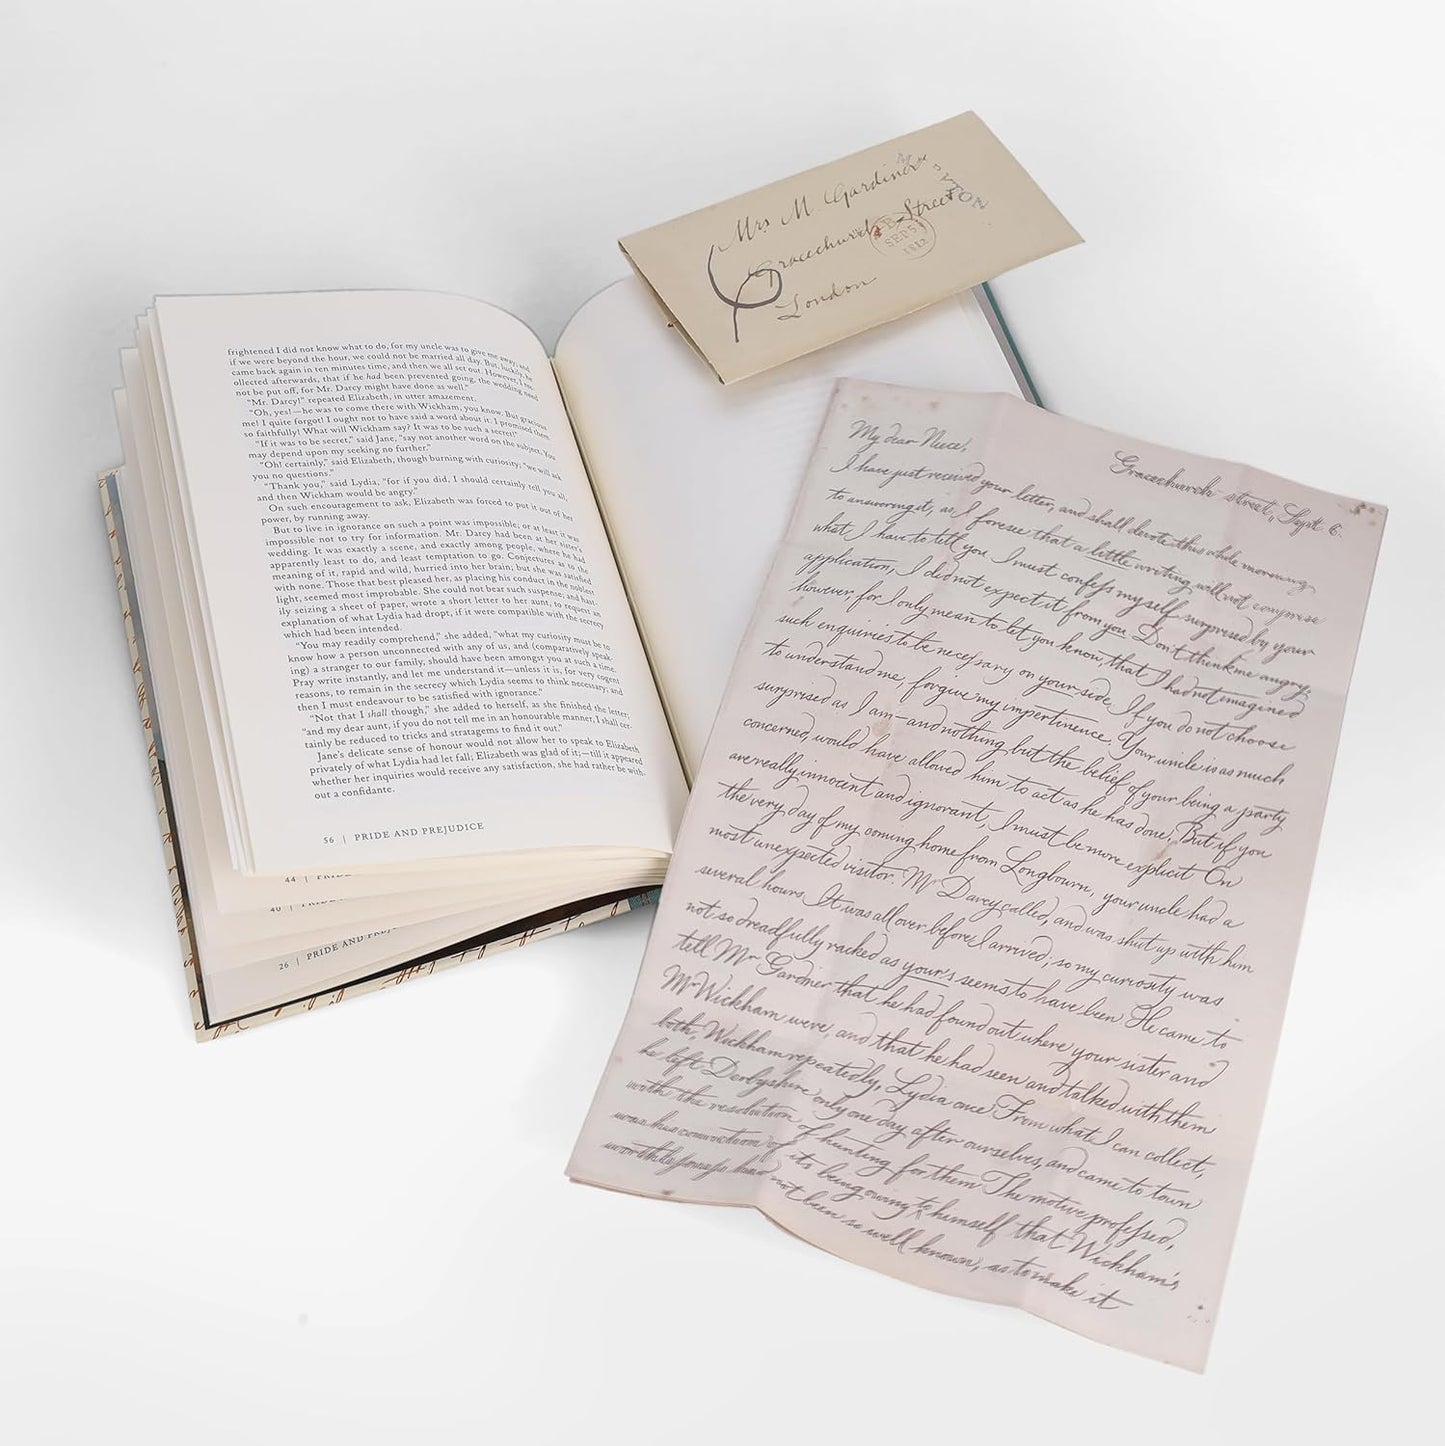 frightened I did not know what to do, for my uncle was to give me away; and
if we were beyond the hour, we could not be married all day. But, luckily, he
came back again in ten minutes time, and then we all set out. However, I rec
ollected afterwards, that if he had been prevented going, the wedding need
not be put off, for Mr. Darcy might have done as well."
"Mr. Darcy!" repeated Elizabeth, in utter amazement.
"Oh, yes!—he was to come there with Wickham, you know. But gracious
me! I quite forgot! I ought not to have said a word about it. I promised them
so faithfully! What will Wickham say? It was to be such a secret!"
"If it was to be secret," said Jane, "say not another word on the subject. You
may depend upon my seeking no further."
"Oh! certainly," said Elizabeth, though burning with curiosity; "we will ask
you no questions."
"Thank you," said Lydia, "for if you did, I should certainly tell you all,
and then Wickham would be angry."
On such encouragement to ask, Elizabeth was forced to put it out of her
power, by running away.
But to live in ignorance on such a point was impossible; or at least it was
impossible not to try for information. Mr. Darcy had been at her sister's
wedding. It was exactly a scene, and exactly among people, where he had
apparently least to do, and least temptation to go. Conjectures as to the
meaning of it, rapid and wild, hurried into her brain; but she was satisfied
with none. Those that best pleased her, as placing his conduct in the noblest
light, seemed most improbable. She could not bear such suspense; and hast
ily seizing a sheet of paper, wrote a short letter to her aunt, to request an
explanation of what Lydia had dropt, if it were compatible with the secrecy
which had been intended.
"You may readily comprehend," she added, "what my curiosity must be to
know how a person unconnected with any of us, and (comparatively speak-
ing) a stranger to our family, should have been amongst you at such a time.
Pray write instantly, and let me understand it—unless it is, for very cogent
reasons, to remain in the secrecy which Lydia seems to think necessary; and
then I must endeavour to be satisfied with ignorance."
"Not that I shall though," she added to herself, as she finished the letter;
"and my dear aunt, if you do not tell me in an honourable manner, I shall cer-
tainly be reduced to tricks and stratagems to find it out."
Jane's delicate sense of honour would not allow her to speak to Elizabeth
privately of what Lydia had let fall; Elizabeth was glad of it;—till it appeared
whether her inquiries would receive any satisfaction, she had rather be with-
out a confidante.
56 | PRIDE AND PREJUDICE
44 | PRIDE
40 | PRIDE A
26 | PRIDE AND PREJU
Mrs M. Gardiner
Gracechurch Street
London
B
SEP 5
1812
Gracechurch street, Sept. 6.
My dear Niece,
I have just received your letter, and shall devote this whole morning
to answering it, as I foresee that a little writing will not comprise
what I have to tell you. I must confess myself surprised by your
application; I did not expect it from you. Don't think me angry,
however, for I only mean to let you know, that I had not imagined
such enquiries to be necessary on your side. If you do not choose
to understand me, forgive my impertinence. Your uncle is as much
surprised as I am—and nothing but the belief of your being a party
concerned, would have allowed him to act as he has done. But if you
are really innocent and ignorant, I must be more explicit. On
the very day of my coming home from Longbourn, your uncle had a
most unexpected visitor. Mr Darcy called, and was shut up with him
several hours. It was all over before I arrived; so my curiosity was
not so dreadfully racked as your's seems to have been. He came to
tell Mr Gardner that he had found out where your sister and
Mr Wickham were, and that he had seen and talked with them
both, Wickham repeatedly, Lydia once. From what I can collect,
he left Derbyshire only one day after ourselves, and came to town
with the resolution of hunting for them. The motive professed,
was his conviction of its being owing to himself that Wickham's
worthlessness had not been so well known, as to make it